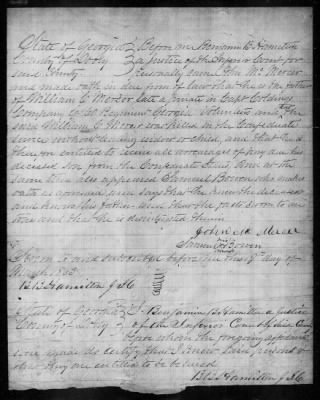 State of Georgia } Before me Benjamin B. Hamilton
County of Dooly } a Justice of the Inferior Court for
said County. Personally came John Mc Mercer
and made oath in due form of law that he is the father
of William C Mercer late a private in Capt
Company Regiment Georgia Volunteers and that
said William C Mercer was killed in the Confederate
service without leaving widow or child, and that he is
therefore entitled to receive all arrearages of pay due his
deceased son from the Confederate States. Now at the
same time also appeared Samuel Bowen who makes
oath and says that he knew the deceased
and knows his father and that the facts
true and that he is disinterested
John Mc Mercer
Samuel Bowen
Sworn to and subscribed before me this day of
March 1863
B B Hamilton J I C
State of Georgia } I Benjamin B Hamilton a Justice
County of Dooly } of the Inferior Court of said County
before whom the foregoing
were made do certify that I know said persons &
they are entitled to be believed
B B Hamilton J I C